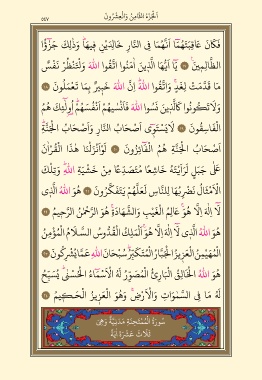 اَلْجُزْءُ الثَّامِنُ وَالْعِشْرُونَ
٥٤٧
فَكَانَ عَاقِبَتَهُمَٓا اَنَّهُمَا فِي النَّارِ خَالِدَيْنِ فِيهَاۜ وَذٰلِكَ جَزٰٓؤُا
الظَّالِمِينَ ۟ ﴿١٧﴾ يَٓا اَيُّهَا الَّذِينَ اٰمَنُوا اتَّقُوا اللّٰهَ وَلْتَنْظُرْ نَفْسٌ
مَا قَدَّمَتْ لِغَدٍۚ وَاتَّقُوا اللّٰهَۜ اِنَّ اللّٰهَ خَبِيرٌ بِمَا تَعْمَلُونَ ﴿١٨﴾
وَلَا تَكُونُوا كَالَّذِينَ نَسُوا اللّٰهَ فَاَنْسٰيهُمْ اَنْفُسَهُمْۜ اُو۬لٰٓئِكَ هُمُ
الْفَاسِقُونَ ﴿١٩﴾ لَا يَسْتَوِٓي اَصْحَابُ النَّارِ وَاَصْحَابُ الْجَنَّةِۜ
اَصْحَابُ الْجَنَّةِ هُمُ الْفَٓائِزُونَ ﴿٢٠﴾ لَوْ اَنْزَلْنَا هٰذَا الْقُرْاٰنَ
عَلٰى جَبَلٍ لَرَاَيْتَهُ خَاشِعًا مُتَصَدِّعًا مِنْ خَشْيَةِ اللّٰهِۜ وَتِلْكَ
الْاَمْثَالُ نَضْرِبُهَا لِلنَّاسِ لَعَلَّهُمْ يَتَفَكَّرُونَ ﴿٢١﴾ هُوَ اللّٰهُ الَّذِي
لَٓا اِلٰهَ اِلَّا هُوَۚ عَالِمُ الْغَيْبِ وَالشَّهَادَةِۚ هُوَ الرَّحْمٰنُ الرَّحِيمُ ﴿٢٢﴾
هُوَ اللّٰهُ الَّذِي لَٓا اِلٰهَ اِلَّا هُوَۚ اَلْمَلِكُ الْقُدُّوسُ السَّلَامُ الْمُؤْمِنُ
الْمُهَيْمِنُ الْعَزِيزُ الْجَبَّارُ الْمُتَكَبِّرُۜ سُبْحَانَ اللّٰهِ عَمَّا يُشْرِكُونَ ﴿٢٣﴾
هُوَ اللّٰهُ الْخَالِقُ الْبَارِئُ الْمُصَوِّرُ لَهُ الْاَسْمَٓاءُ الْحُسْنٰىۜ يُسَبِّحُ
لَهُ مَا فِي السَّمٰوَاتِ وَالْاَرْضِۚ وَهُوَ الْعَزِيزُ الْحَكِيمُ ﴿٢٤﴾
سُورَةُ الْمُمْتَحِنَةِ مَدَنِيَّةٌ وَهِيَ
ثَلَاثَ عَشْرَةَ اٰيَةً